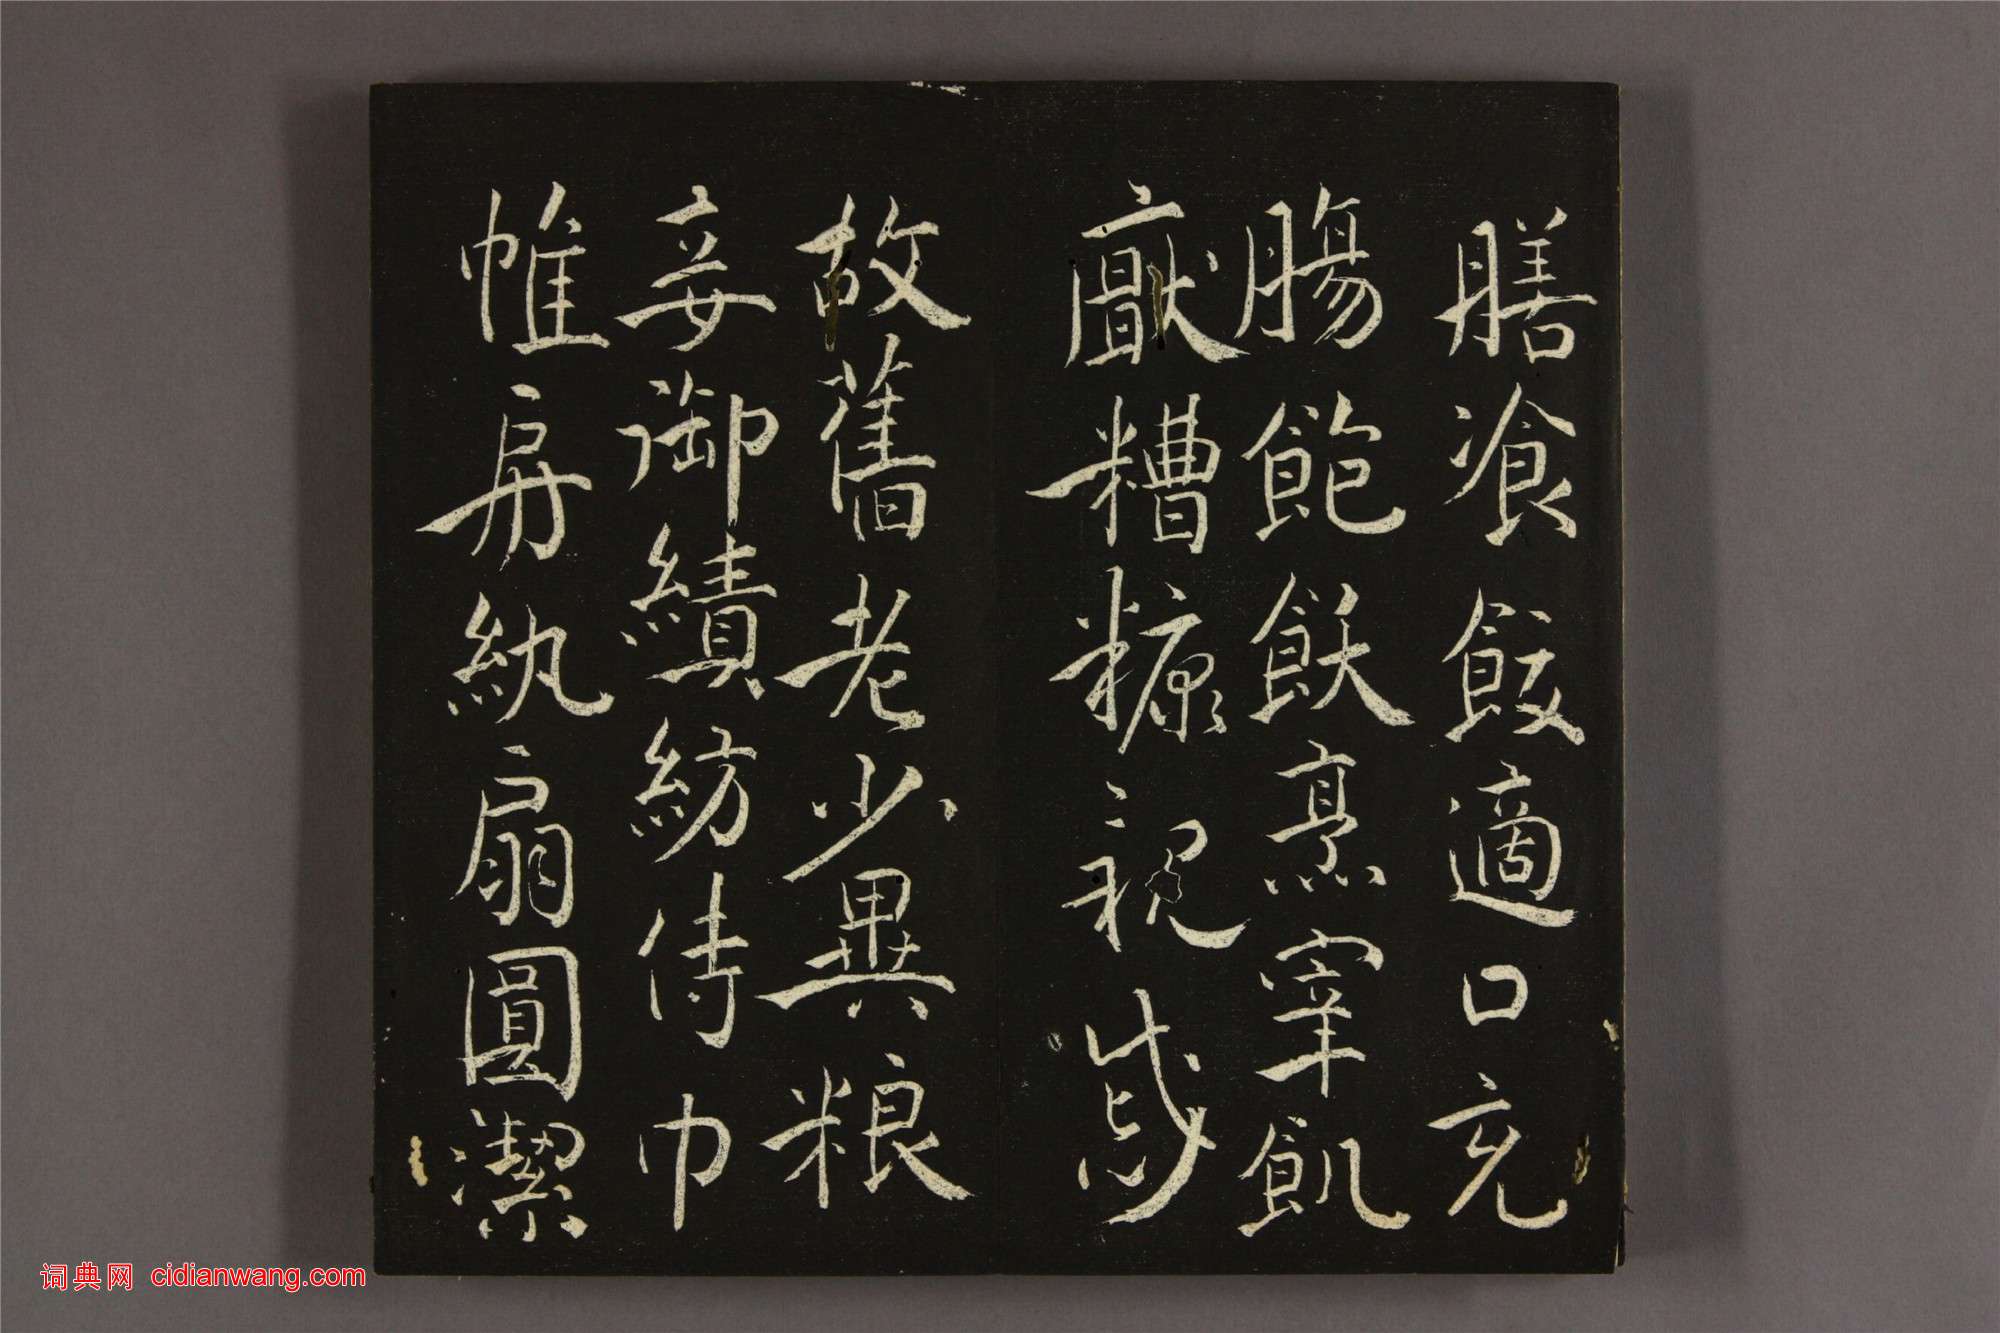 膳飡飯適口充
腸飽飫烹宰飢
厭糟糠親戚
故舊老少異粮
妾御績紡侍巾
帷房紈扇圓潔
词典网 cidianwang.com